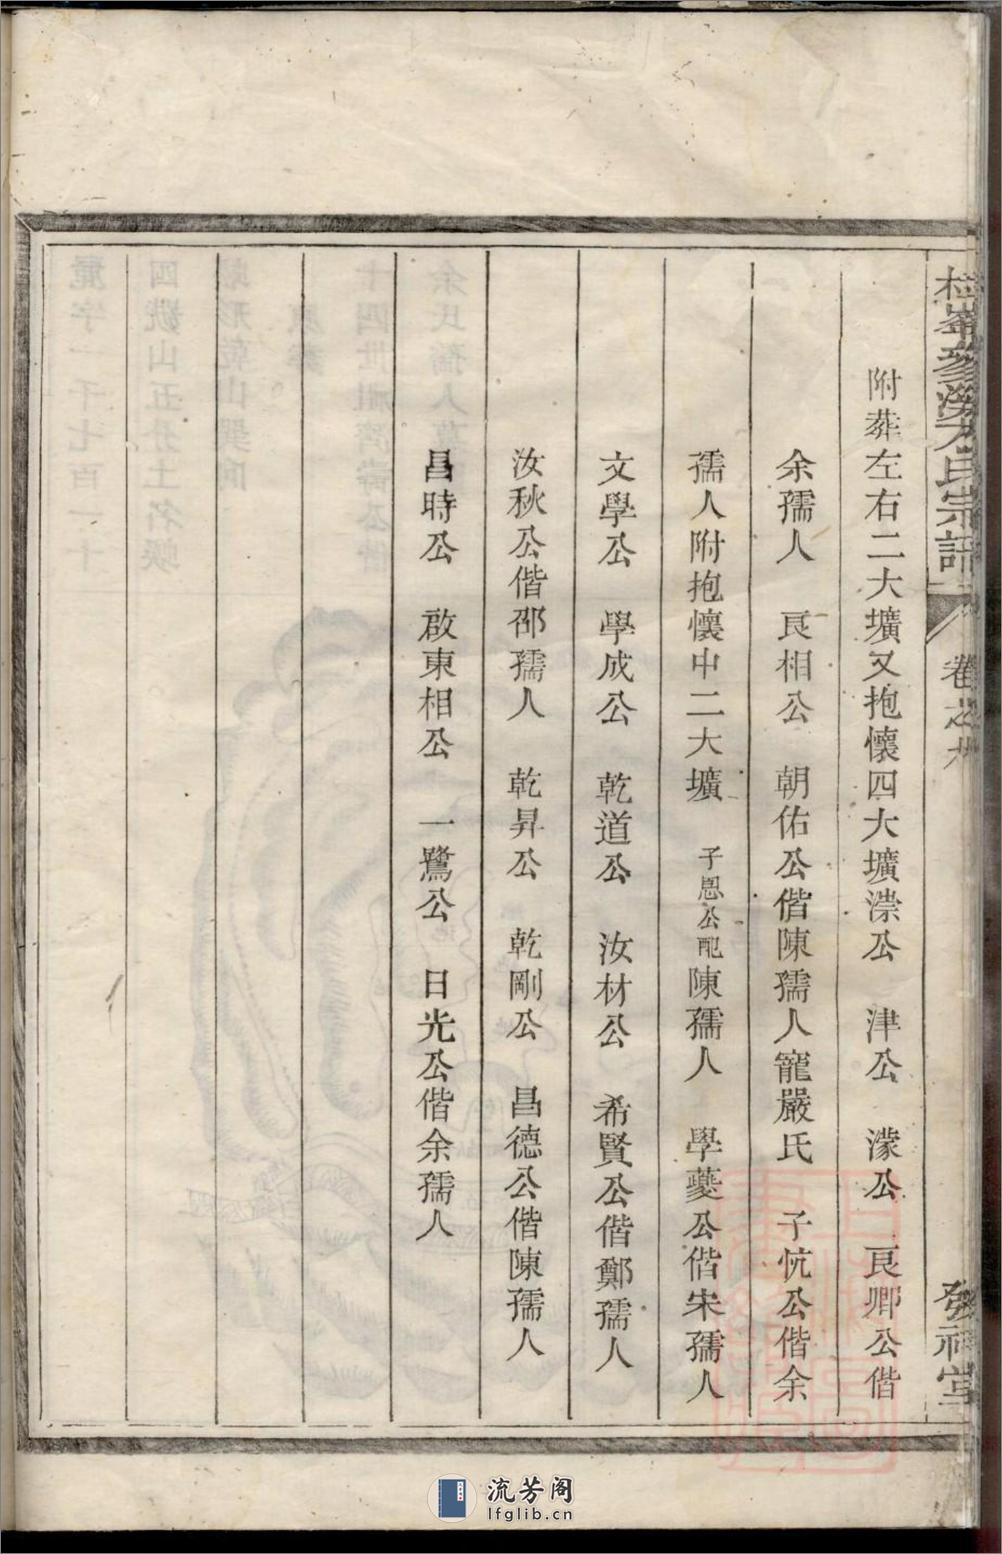 氏宗譜
卷之九
發祥堂
附葬左右二大壙又抱懷四大壙漴公　津公　濛公　良卿公偕
余孺人　良相公　朝佑公偕陳孺人寵嚴氏　子忼公偕余
孺人附抱懷中二大壙　子恩公配陳孺人　學夔公偕宋孺人
文學公　學成公　乾道公　汝材公　希賢公偕鄭孺人
汝秋公偕邵孺人　乾昇公　乾剛公　昌德公偕陳孺人
昌時公　啟東相公　一鷺公　日光公偕余孺人
流芳阁
lfglib.cn